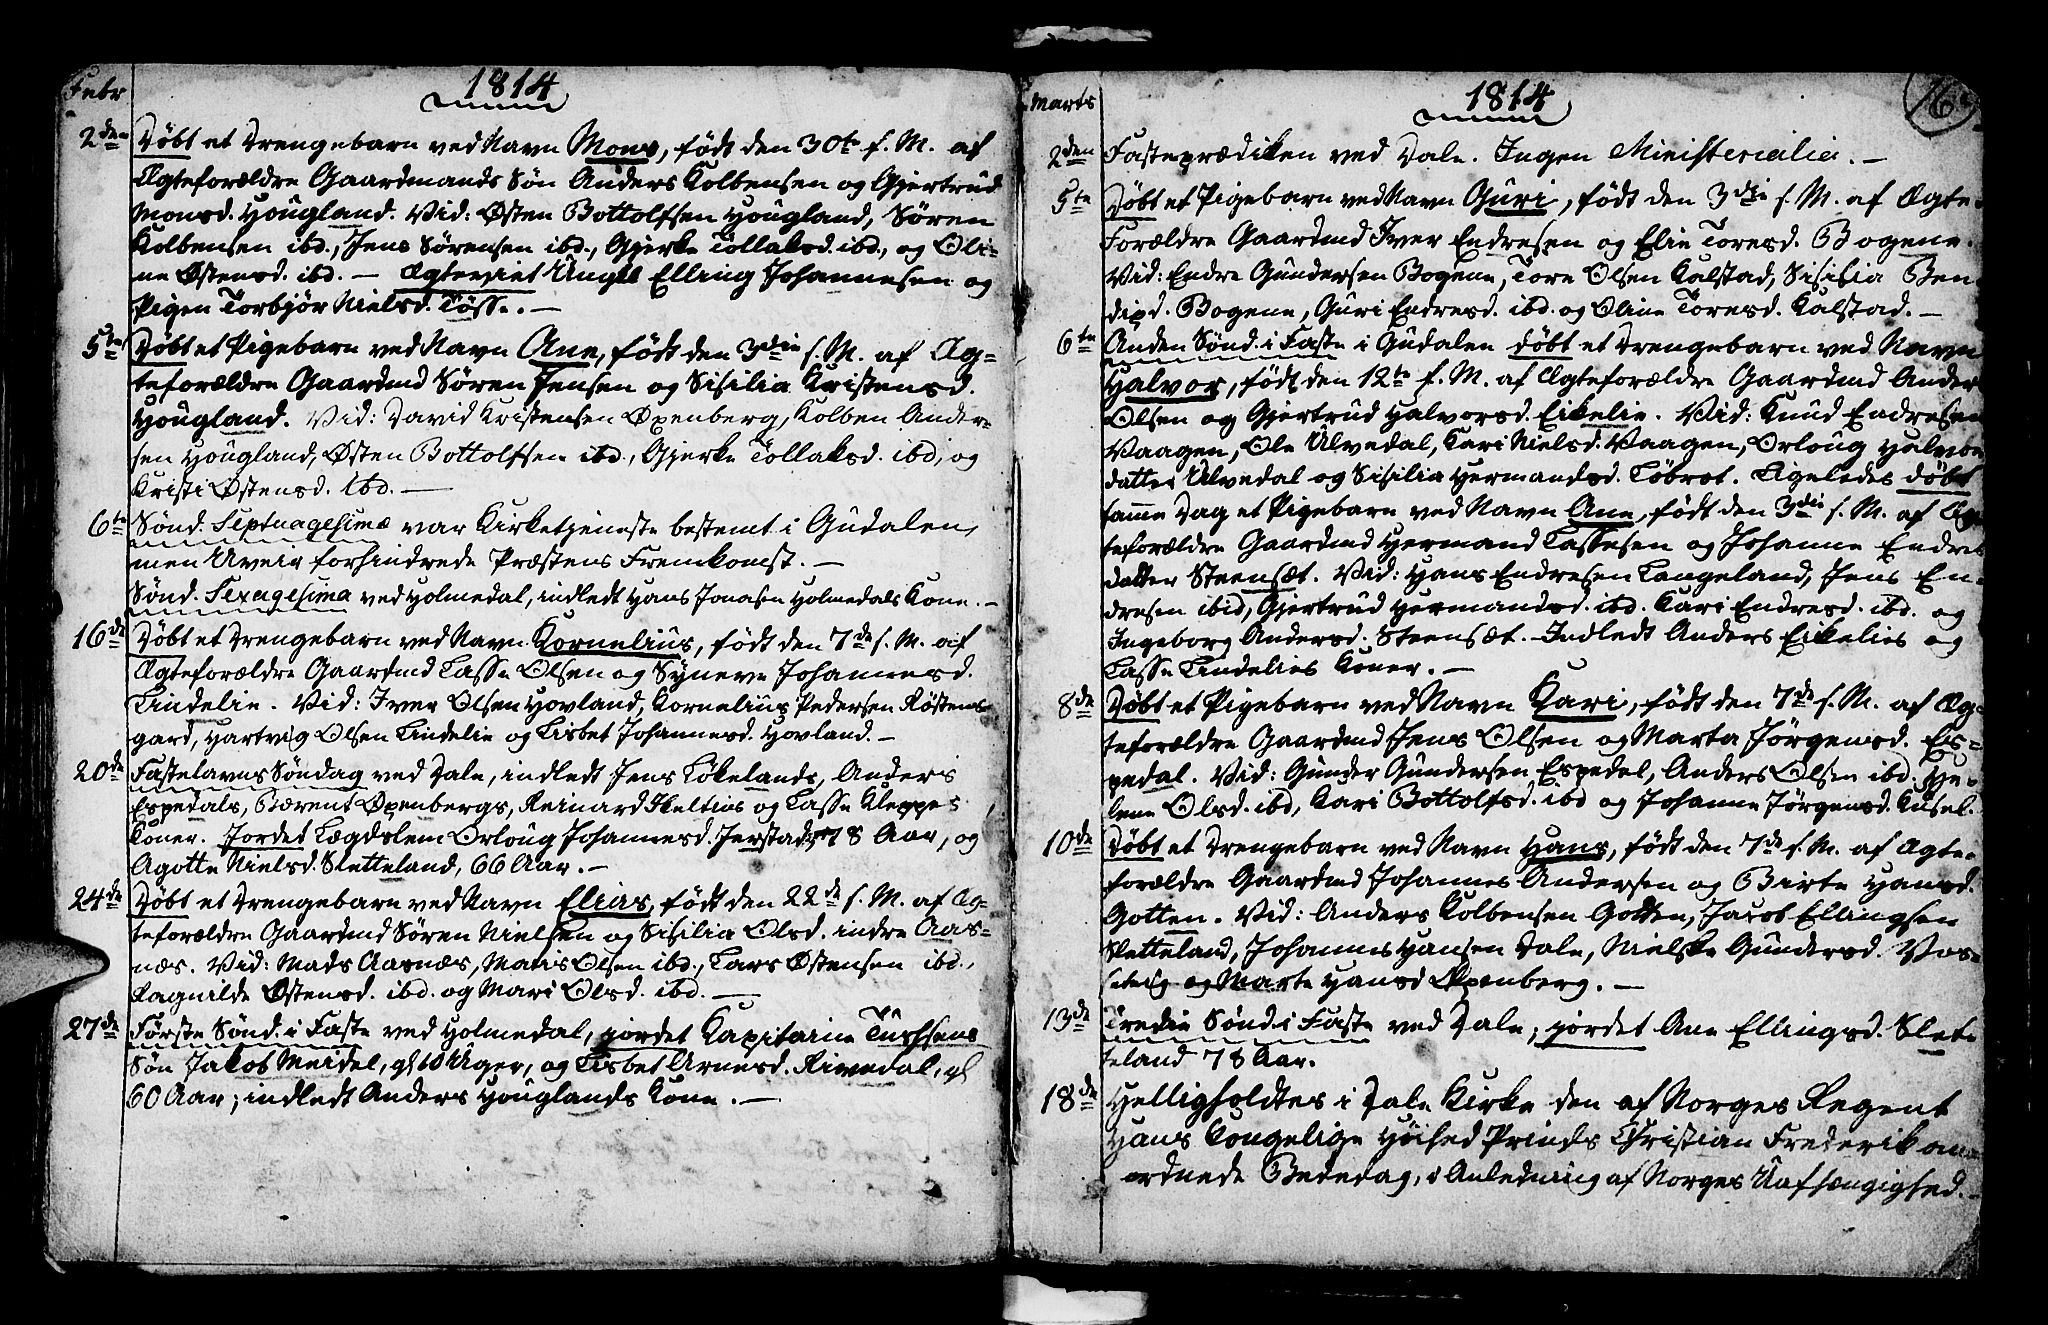 Febr
1814
2den Døbt et Drengebarn ved Navn Mons, født den 30te f. M. af
Ægteforældre Gaardmands Søn Anders Kolbensen og Gjertrud
Monsd. Hougland. Vid: Østen Bottolfsen Hougland, Søren
Kolbensen ibd., Jens Sørensen ibd., Gjerke Tollaksd. ibd., og Oli-
ne Østensd. ibd. — Ægteviet Ungk Elling Johannesen og
Pigen Torbjør Nielsd. Tösse. —
5te Døbt et Pigebarn ved Navn Ane, født den 3die s. M. af Æg-
teforældre Gaardmd Søren Jensen og Sisilia Kristensd.
Hougland. Vid: David Kristensen Øpenberg, Kolben Ander-
sen Hougland, Østen Bottolfsen ibd., Gjerke Tollaksd. ibd, og
Kristi Østensd. ibd. —
6te Sønd. Septuagesimæ var Kirketjeneste bestemt i Gudalen,
men Uveir forhindrede Præstens Fremkomst. —
Sønd. Sexagesima ved Holmedal, indledt Hans Jonasen Holmedals Kone. —
16de Døbt et Drengebarn ved Navn Kornelius, født den 7de s. M. af
Ægteforældre Gaardmd Lasse Olsen og Synneve Johannesd.
Lindelie. Vid: Iver Olsen Hovland, Kornelius Pedersen Röstens-
gard, Hartvig Olsen Lindelie og Lisbet Johannesd. Hovland. —
20de Fastelavns Søndag ved Dale, indledt Jens Løkelands, Anders
Espedals, Bærent Øpenbergs, Reinard Heltius og Lasse Kleppes
Koner. Jordet Lægdslem Orloug Johannesd. Jerstad, 78 Aar, og
Agotte Nielsd. Sletteland, 66 Aar. —
24de Døbt et Drengebarn ved Navn Elias, født den 22de s. M. af Æg-
teforældre Gaardmd Søren Nielsen og Sisilia Olsd. indre Aas-
næs. Vid: Mads Aasnæs, Mons Olsen ibd., Lars Østensen ibd.,
Ragnilde Østensd. ibd. og Mari Olsd. ibd. —
27de Første Sønd. i Faste ved Holmedal, jordet Kapitaine Tuchsens
Søn Jakob Meidel, gl 10 Uger, og Lisbet Arnesd. Rivedal, gl
60 Aar; indledt Anders Houglands Kone. —
Marts
1814
16
2den Fasteprædiken ved Dale. Ingen Ministerialia. —
5te Døbt et Pigebarn ved Navn Guri, født den 3die s. M. af Ægte-
Forældre Gaardmd Iver Endresen og Elie Toresd. Bogene.
Vid: Endre Gundersen Bogene, Tore Olsen Kalstad, Sisilia Ben-
dixd. Bogene, Guri Endresd. ibd. og Oline Toresd. Kalstad. —
6te Anden Sønd. i Faste i Gudalen døbt et Drengebarn ved Navn
Halvor, født den 12te f. M. af Ægteforældre Gaardmd Anders
Olsen og Gjertrud Halvorsd. Eikelie. Vid: Knud Endresen
Vaagen, Ole Ulvedal, Kari Nielsd. Vaagen, Orloug Halvors
datter Ulvedal og Sisilia Hermandsd. Løbrot. Ligeledes døbt
samme Dag et Pigebarn ved Navn Ane, født den 3die s. M. af Æg-
teforældre Gaardmd Hermand Lassesen og Johanne Endres
datter Steensæt. Vid: Hans Endresen Langeland, Jens En-
dresen ibid, Gjertrud Hermandsd. ibd. Kari Endresd. ibd. og
Ingeborg Andersd. Steensæt. Indledt Anders Eikelies og
Lasse Lindelies Koner. —
8de Døbt et Pigebarn ved Navn Kari, født den 7de s. M. af Æg-
teforældre Gaardmd Jens Olsen og Marta Jørgensd. Es-
pedal. Vid: Gunder Gundersen Espedal, Anders Olsen ibd. He-
lene Olsd. ibd, Kari Bottolfsd. ibd og Johanne Jørgensd. Kusel.
10de Døbt et Drengebarn ved Navn Hans, født den 7de s. M. af Ægte-
forældre Gaardmd Johannes Andersen og Birte Hansd.
Gotten. Vid: Anders Kolbensen Gotten, Jacob Ellingsen
Sletteland, Johannes Hansen Dale, Nielske Gundersd. Vos-
og Marte Hansd Øpenberg. —
13de Tredie Sønd. i Faste ved Dale, jordet Ane Ellingsd. Slet-
teland 78 Aar.
18de Helligholdtes i Dale Kirke den af Norges Regent
Hans Kongelige Höihed Prinds Christian Frederik an-
ordnede Bededag, i Anledning af Norges Uafhængighed.